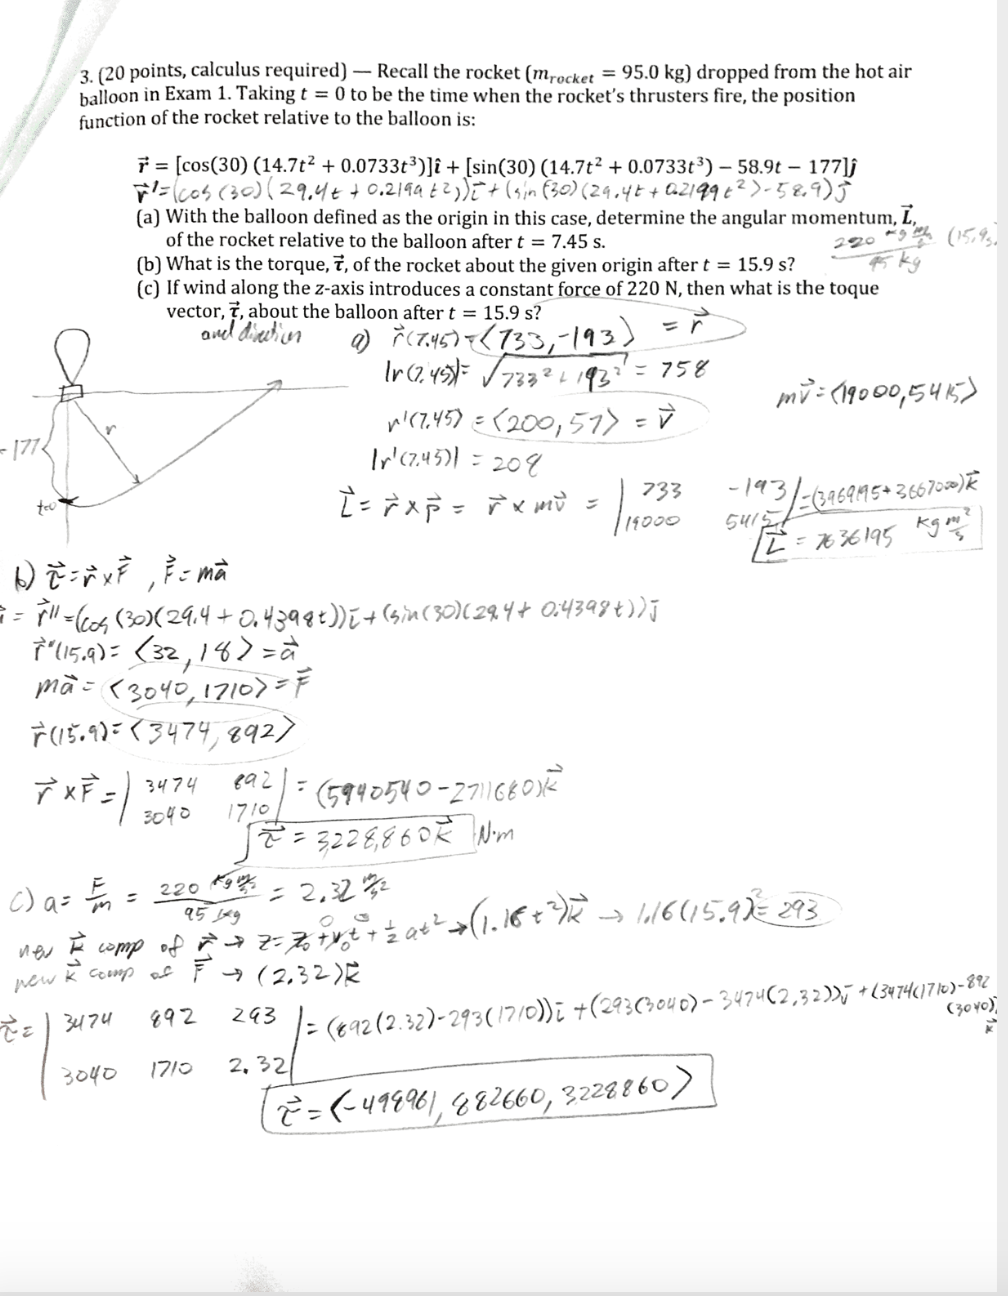 3. (20 points, calculus required) — Recall the rocket (m_rocket = 95.0 kg) dropped from the hot air
balloon in Exam 1. Taking t = 0 to be the time when the rocket's thrusters fire, the position
function of the rocket relative to the balloon is:
r⃗ = [cos(30) (14.7t² + 0.0733t³)]î + [sin(30) (14.7t² + 0.0733t³) − 58.9t − 177]ĵ
r⃗' = (cos(30)(29.4t + 0.2199t²))i⃗ + (sin(30)(29.4t + 0.2199t²) - 58.9)j⃗
(a) With the balloon defined as the origin in this case, determine the angular momentum, L⃗,
of the rocket relative to the balloon after t = 7.45 s.
220 kg m/s / 95 kg (15.9
(b) What is the torque, τ⃗, of the rocket about the given origin after t = 15.9 s?
(c) If wind along the z-axis introduces a constant force of 220 N, then what is the toque
vector, τ⃗, about the balloon after t = 15.9 s?
and direction
a) r⃗(7.45) = <733, -193> = r⃗
|r(7.45)| = √733² + 193² = 758
mv⃗ = <19000, 5415>
r'(7.45) = <200, 57> = v⃗
-177
r
|r'(7.45)| = 208
t=0
L⃗ = r⃗ x p⃗ = r⃗ x mv⃗ = | 733 -193 | = (3969195 + 3667000)k⃗
19000 5415
L⃗ = 7636195 kg m²/s
b) τ⃗ = r⃗ x F⃗ , F⃗ = ma⃗
= r⃗'' = (cos(30)(29.4 + 0.4398t))i⃗ + (sin(30)(29.4 + 0.4398t))j⃗
r⃗''(15.9) = <32, 18> = a⃗
ma⃗ = <3040, 1710> = F⃗
r⃗(15.9) = <3474, 892>
r⃗ x F⃗ = | 3474 892 | = (5940540 - 2711680)k⃗
3040 1710
τ⃗ = 3,228,860k⃗ N·m
c) a = F/m = 220 kg m/s² / 95 kg = 2.32 m/s²
new k⃗ comp of r⃗ → z = z₀ + v₀t + ½at² → (1.16t²)k⃗ → 1.16(15.9)² = 293
0 0
new k⃗ comp of F⃗ → (2.32)k⃗
τ⃗ = | 3474 892 293 | = (892(2.32) - 293(1710))i⃗ + (293(3040) - 3474(2.32))j⃗ + (3474(1710) - 892
(3040))
k⃗
3040 1710 2.32
τ⃗ = <-498961, 882660, 3228860>